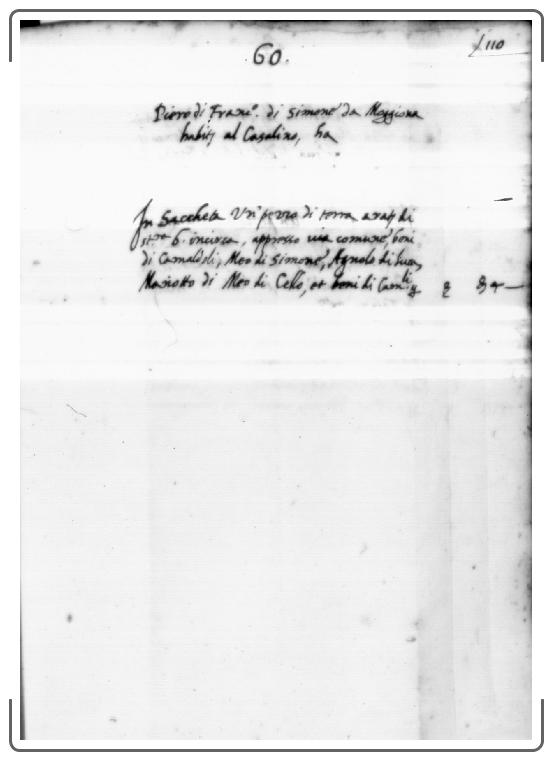 110
60.
Piero di Franc.º di Simone da Moggiona
habit al Casalino, ha
In Saccheta Un pezzo di terra arat di
stra 6. incirca, appresso via comune, beni
di Camaldoli, Meo di Simone, Agnolo di Luca,
Mariotto di Meo di Cello, et beni di Cam